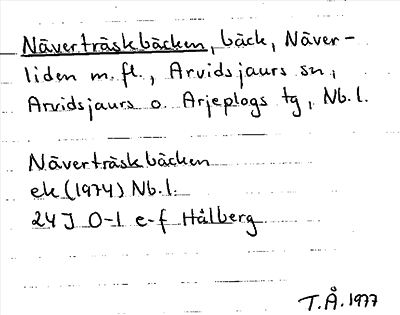 Näverträskbäcken, bäck, Näver-
liden m.fl., Arvidsjaurs sn,
Arvidsjaurs o. Arjeplogs tg, Nb.l.
Näverträskbäcken
ek (1974) Nb.l.
24J 0-1 e-f Hålberg
T.Å. 1977